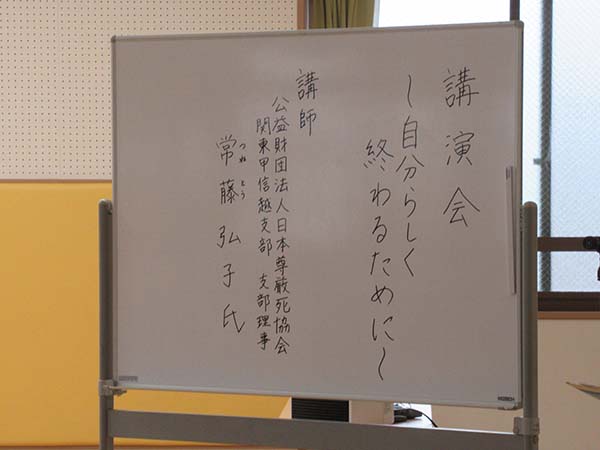 講演会
~自分らしく
終わるために~
講師
公益財団法人日本尊厳死協会
関東甲信越支部 支部理事
常藤弘子氏
つねとう